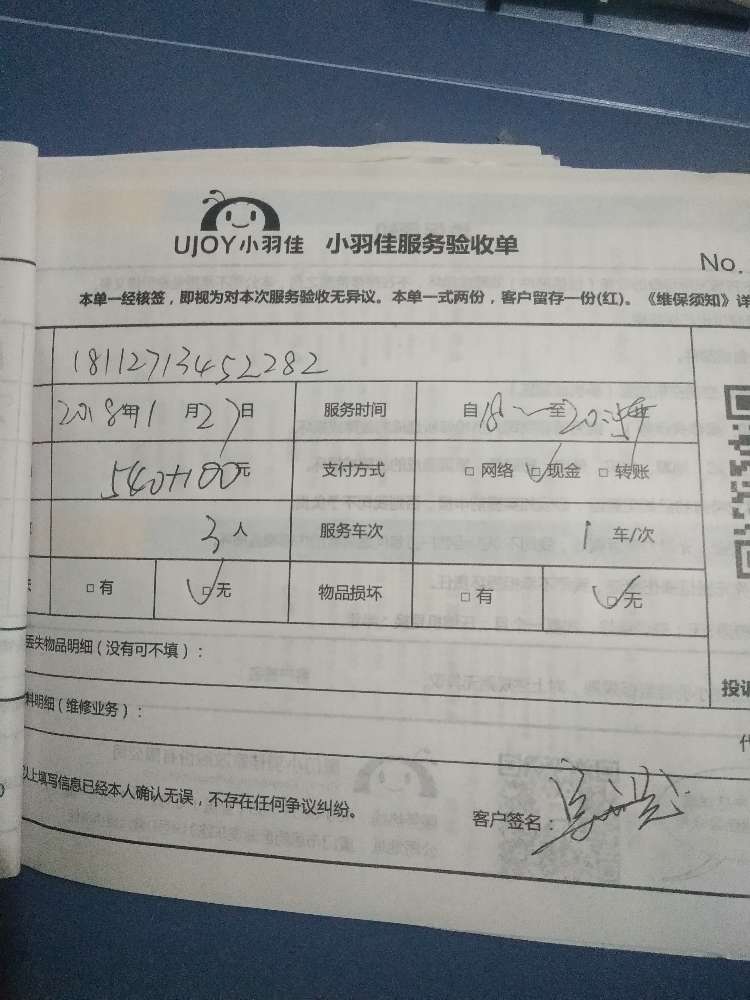 UJOY小羽佳 小羽佳服务验收单
No.
本单一经核签，即视为对本次服务验收无异议。本单一式两份，客户留存一份(红)。《维保须知》详
18112713452282
2018年1月27日 服务时间 自18 至20
540+100元 支付方式 □网络 □现金 □转账
3人 服务车次 1车/次
□有 □无 物品损坏 □有 □无
丢失物品明细（没有可不填）：
投诉
料明细（维修业务）：
以上填写信息已经本人确认无误，不存在任何争议纠纷。
客户签名：